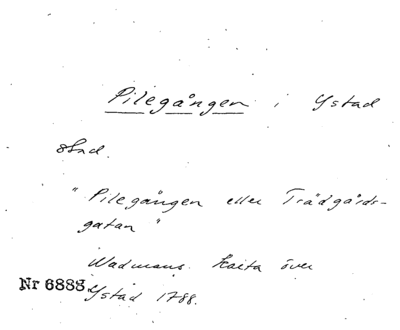 Pilegången i Ystad
stad.
"Pilegången eller Trädgårds-
gatan"
Wadmans karta över
Nr 6888.
Ystad 1788.